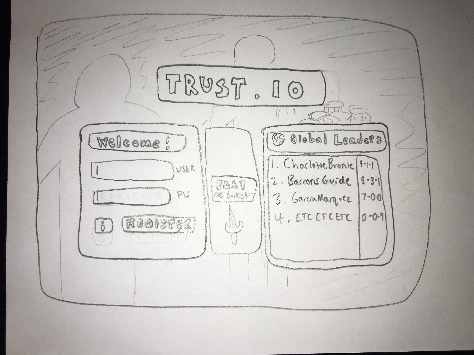 TRUST.IO
Welcome:
USER
PW
i REGISTER
PLAY
AS GUEST
Global Leaders
1. CharlotteBronte 1-1-1
2. BarronsGuide 8-3-1
3. GarciaMarquez 7-0-0
4. ETC ETC ETC 0-0-9